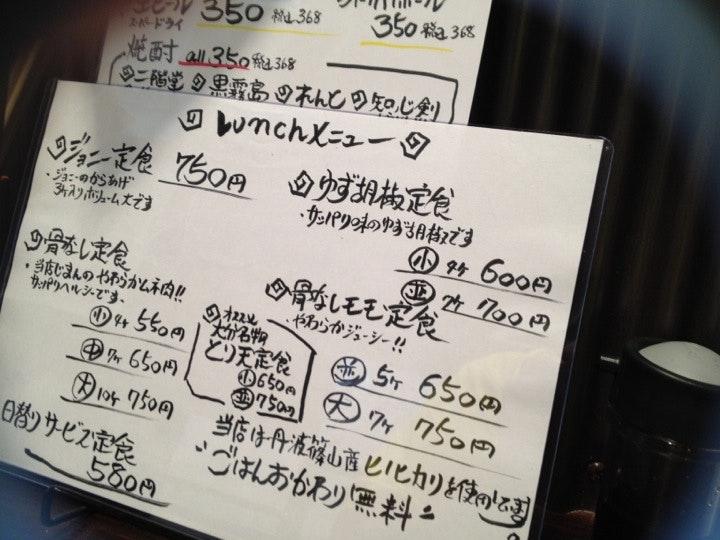 350 税込368
スーパードライ
350 税込368
焼酎 all 350 税込368
二階堂 黒霧島 れんと 知心剣
Lunchメニュー
ジョニー定食 750円
・ジョニーのからあげ
3ヶ入りボリューム大です
ゆず胡椒定食
・サッパリ味のゆず胡椒です
小 4ヶ 600円
並 7ヶ 700円
骨なし定食
・当店じまんのやわらかムネ肉!!
サッパリヘルシーです。
小 4ヶ 550円
中 7ヶ 650円
大 10ヶ 750円
オススメ
大分名物
とり天定食
小 650円
並 750円
骨なしモモ定食
・やわらかジューシー!!
並 5ヶ 650円
大 7ヶ 750円
日替りサービス定食
580円
当店は丹波篠山産ヒノヒカリを使用
ごはんおかわり無料